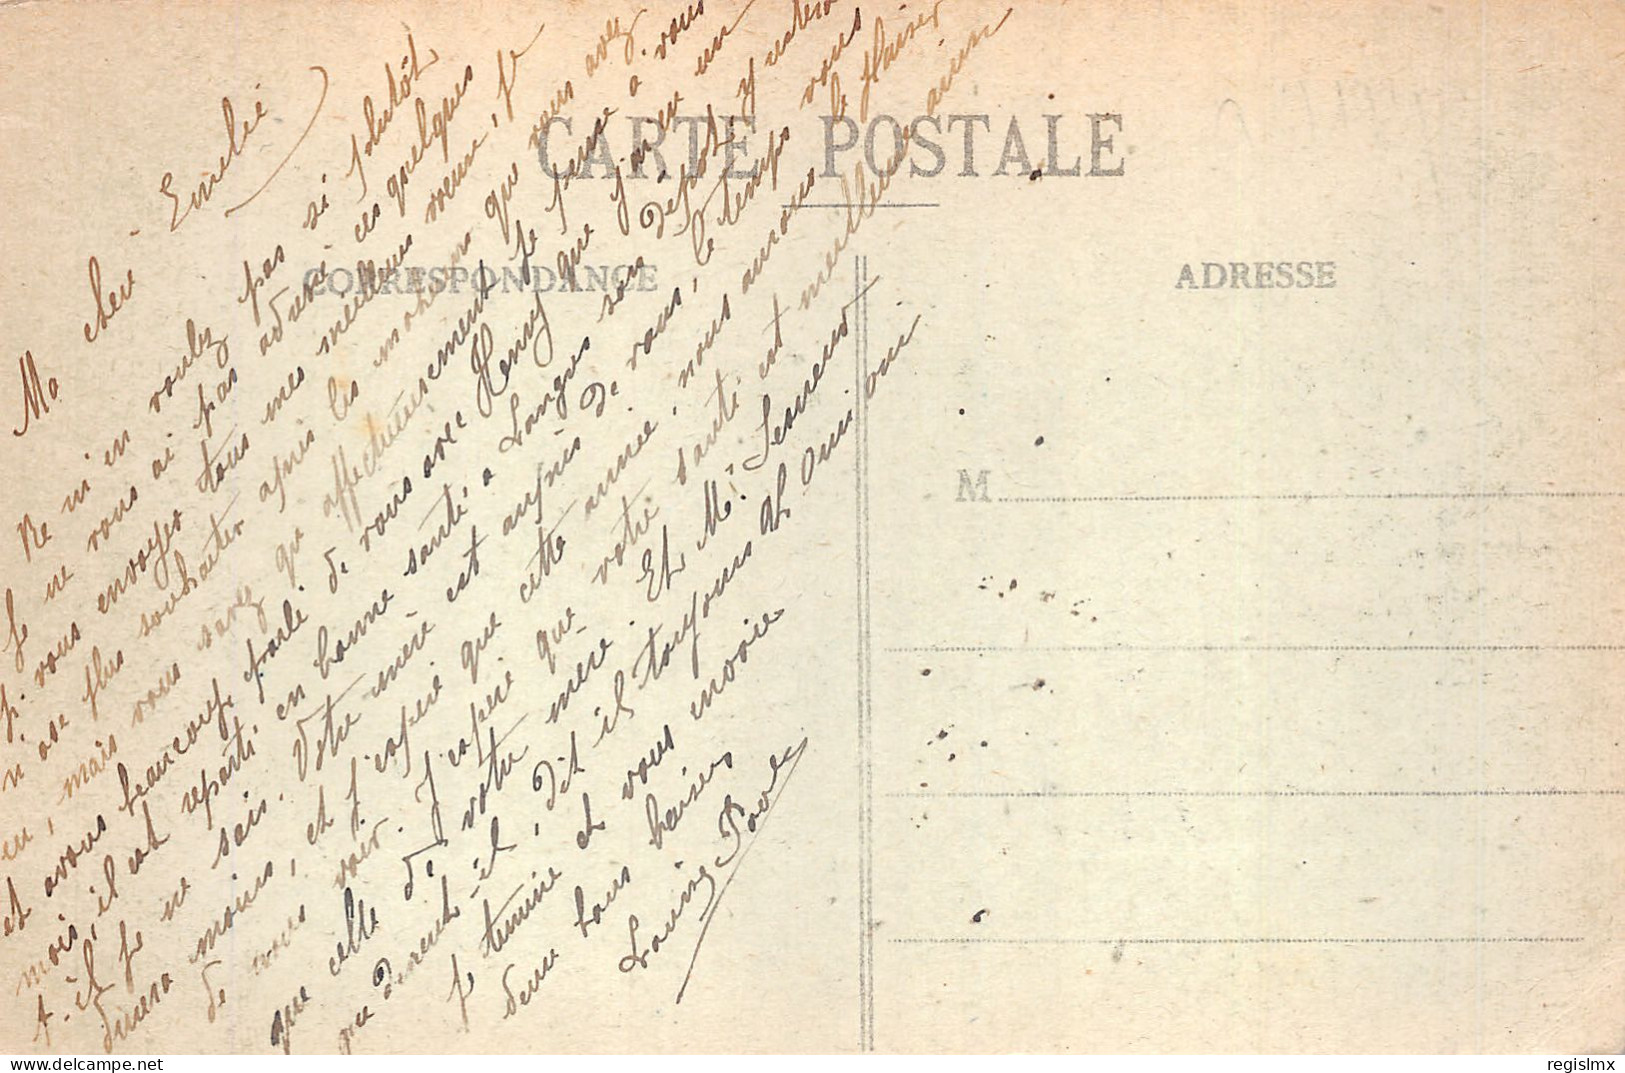 CARTE POSTALE
CORRESPONDANCE
ADRESSE
M
Ma cheri Emelié
Ne m'en voulez pas si plutôt
je ne vous ai pas adressé ces quelques
p. vous envoyer tous mes meilleurs voeux, je
n'ose plus souhaiter après les malheurs que vous avez
eu, mais vous savez qu'affectueusement je pense a vous
et avons beaucoup parlé de vous avec Henry que j'ai eu un
mois, il est reparti en bonne santé a Langres son depot, y restera
t-il, je ne sais. Votre mère est auprès de vous, le temps vous
durera moins, et j'espère que cette année, nous aurons le plaisir
de vous voir. J'espère que votre santé est meilleure ainsi
que celle de votre mere. Et Mr. Lesueur
que devient-il, dit il toujours oui oui
je termine et vous envoie
deux bons baisers
Louise
regislmx